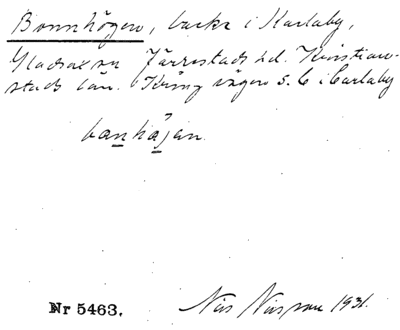 Bonnhögen, backe i Karlaby,
Gladsax sn Järrestads hd. Kristian-
stads län. Kring vägen s. i Carlaby
banhåjan.
Nr 5463. Nils Nilsson 1931.